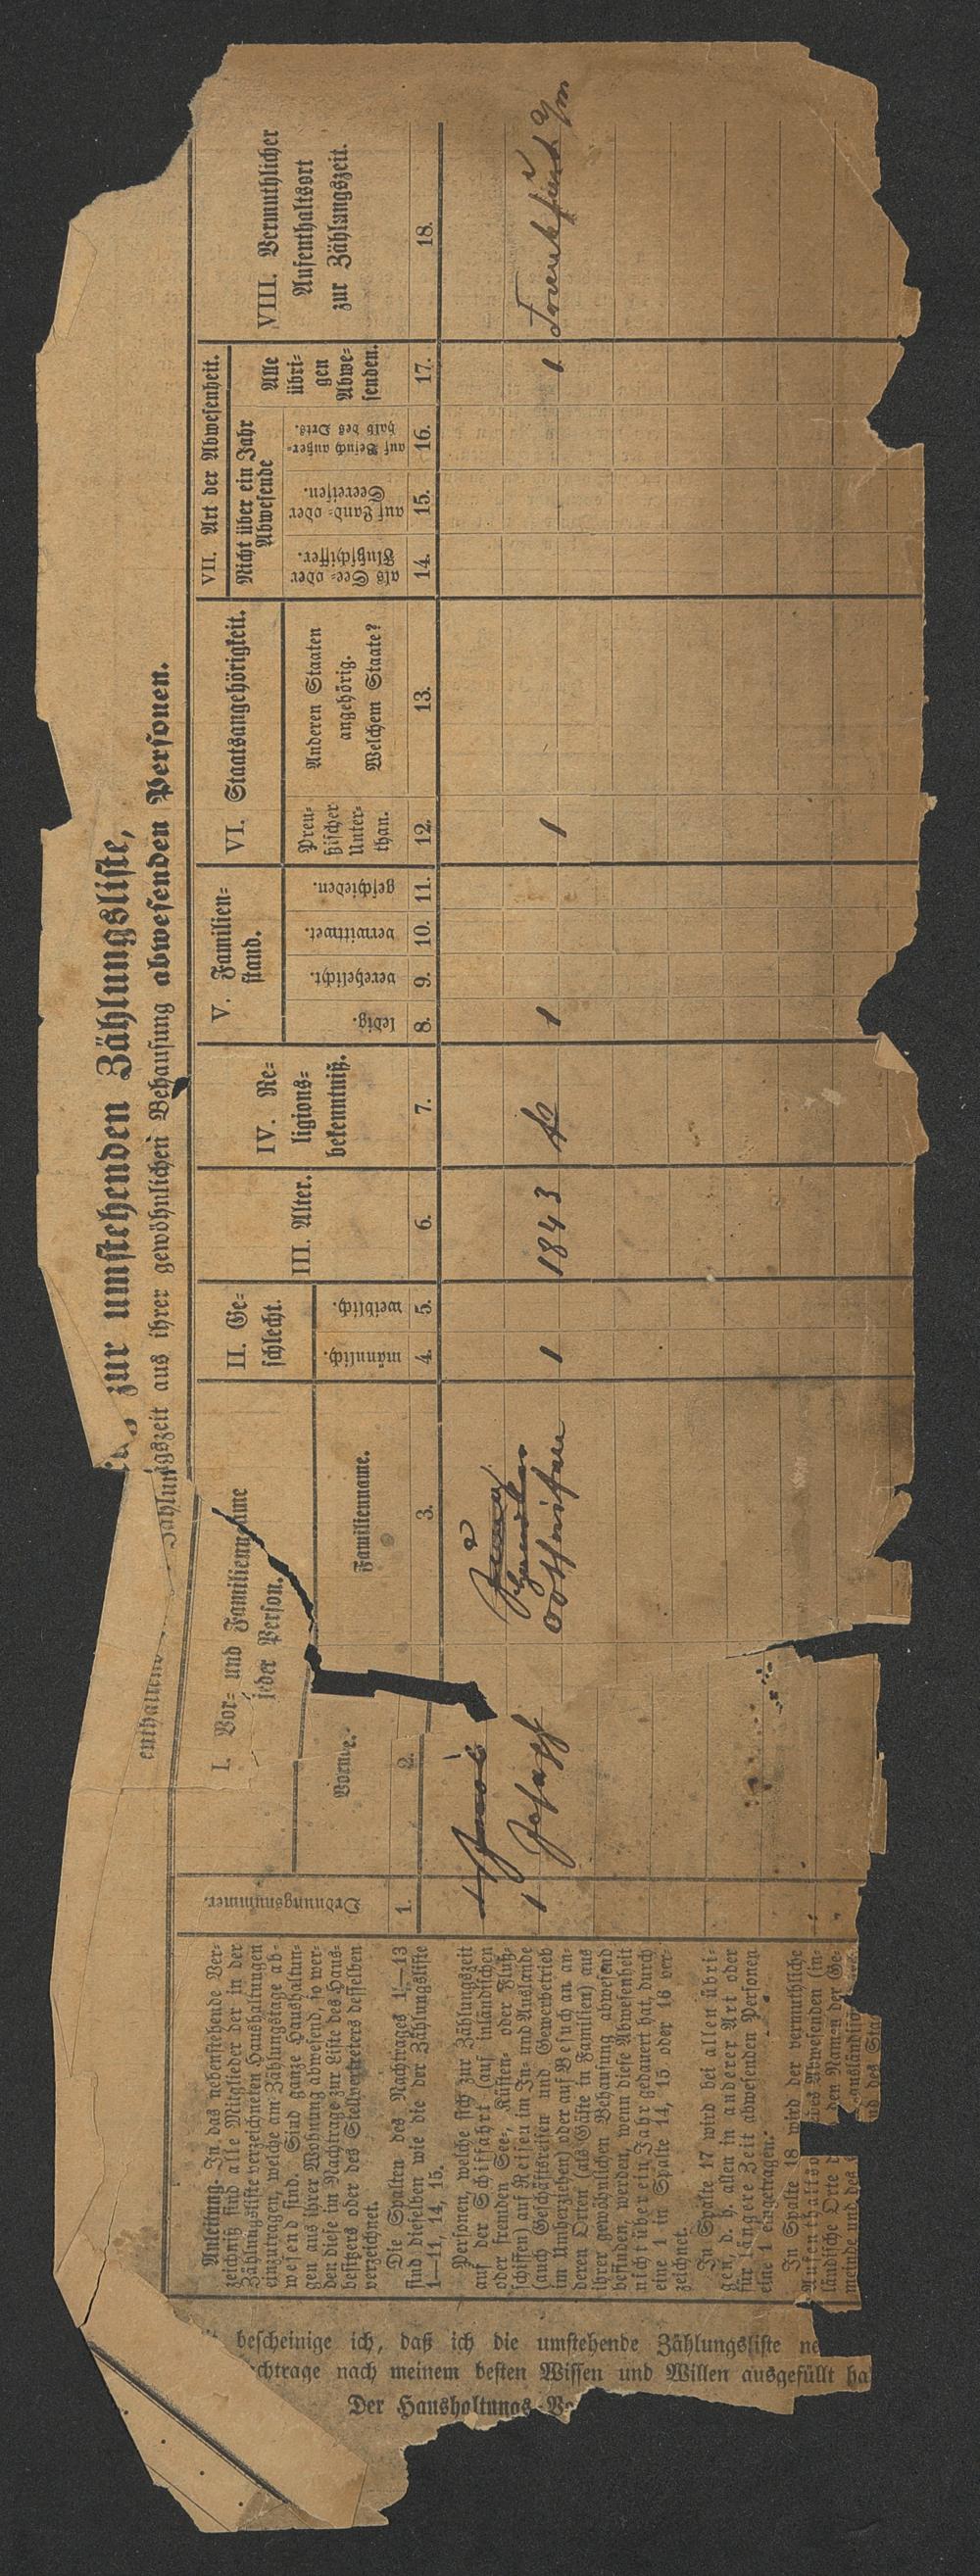 zur umstehenden Zählungsliste,
enthaltend
Zählungszeit aus ihrer gewöhnlichen Behausung abwesenden Personen.
Anleitung. In das nebenstehende Ver-
zeichniß sind alle Mitglieder der in der
Zählungsliste verzeichneten Haushaltungen
einzutragen, welche am Zählungstage ab-
wesend sind. Sind ganze Haushaltun-
gen aus ihrer Wohnung abwesend, so wer-
den diese im Nachtrage zur Liste des Haus-
besitzers oder des Stellvertreters desselben
verzeichnet.
Die Spalten des Nachtrages 1—13
sind dieselben wie die der Zählungsliste
1—11, 14, 15.
Personen, welche sich zur Zählungszeit
auf der Schiffahrt (auf inländischen
oder fremden See-, Küsten- oder Fluß-
schiffen) auf Reisen im In- und Auslande
(auch Geschäftsreisen und Gewerbetrieb
im Umherziehen) oder auf Besuch an an-
deren Orten (als Gäste in Familien) aus
ihrer gewöhnlichen Behausung abwesend
befinden, werden, wenn diese Abwesenheit
nicht über ein Jahr gedauert hat, durch
eine 1 in Spalte 14, 15 oder 16 ver-
zeichnet.
In Spalte 17 wird bei allen übri-
gen, d. h. allen in anderer Art oder
für längere Zeit abwesenden Personen
eine 1 eingetragen.
In Spalte 18 wird der vermuthliche
Aufenthaltso des Abwesenden (in-
ländische Orte den Namen der Ge-
meinde und des ausländische
nd des Staa
Ordnungsnummer.
1.
I. Vor- und Familienname
jeder Person.
Vorname.
2.
Familienname.
3.
II. Ge-
schlecht.
männlich.
4.
weiblich.
5.
III. Alter.
6.
IV. Re-
ligions-
bekenntniß.
7.
V. Familien-
stand.
ledig.
8.
verehelicht.
9.
verwittwet.
10.
geschieden.
11.
VI. Staatsangehörigkeit.
Preu-
ßischer
Unter-
than.
12.
Anderen Staaten
angehörig.
Welchem Staate?
13.
VII. Art der Abwesenheit.
Nicht über ein Jahr
Abwesende
als See- oder
Flußschiffer.
14.
auf Land- oder
Seereisen.
15.
auf Besuch außer-
halb des Orts.
16.
Alle
übri-
gen
Abwe-
senden.
17.
VIII. Vermuthlicher
Aufenthaltsort
zur Zählungszeit.
18.
1
1 Joseph 1 1843 1 1 1 Frankfurt a/m
bescheinige ich, daß ich die umstehende Zählungsliste ne
chtrage nach meinem besten Wissen und Willen ausgefüllt ha
Der Haushaltungs-Vo